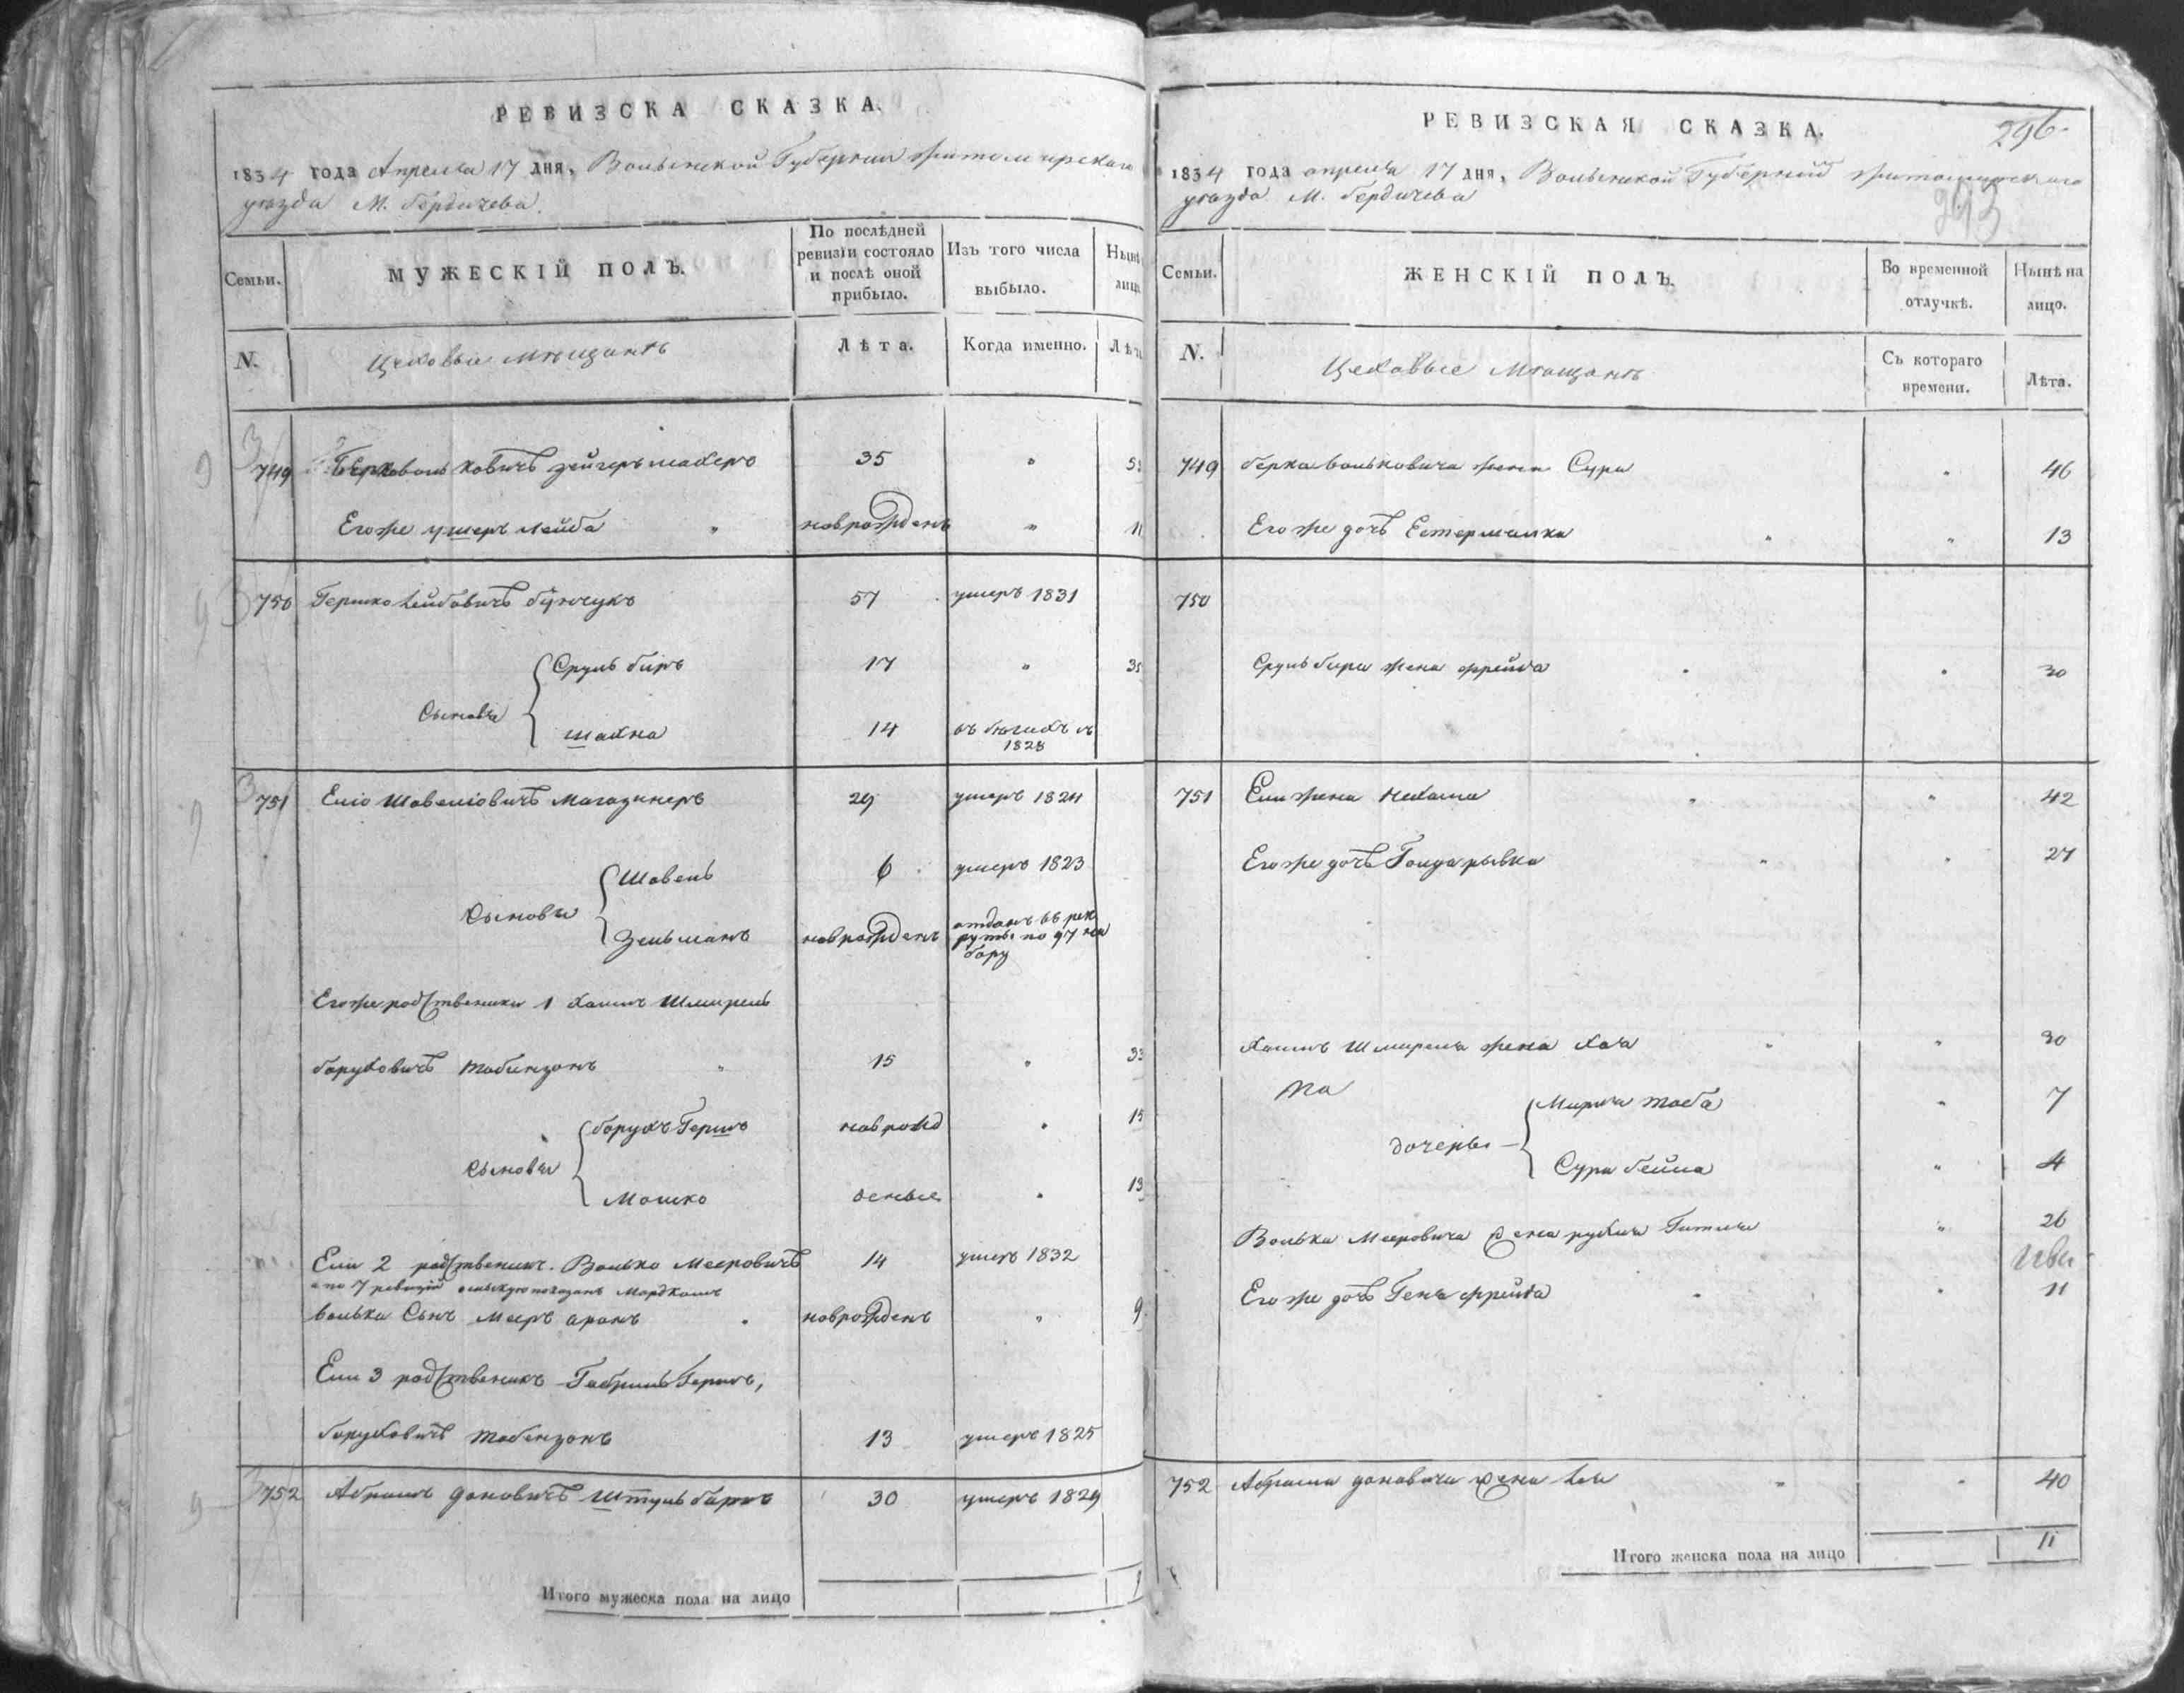 РЕВИЗСКА СКАЗКА.
1834 года Апреля 17 дня, Волынской Губернии Житомирскаго
уезда М. Бердичева.
Семьи.
МУЖЕСКІЙ ПОЛЪ.
По послѣдней
ревизіи состояло
и послѣ оной
прибыло.
Изъ того числа
выбыло.
N.
Цеховые мещане
Лѣта.
Когда именно.
749 Берко Вольковичъ Зейгермахеръ 35 "
Егоже Ушеръ Лейба " новрожденъ "
750 Гершко Лейбовичъ 57 умеръ 1831
Сыновья
Сруль Беръ 17 "
Шахна 14 въ бегахъ съ
1828
751 Еліо Шовеліовичъ Магазинеръ 29 умеръ 1824
Сыновья
Шовель 6 умеръ 1823
Зельманъ новрожденъ отданъ въ рек
руты по 97 на
бору
Егоже родственики 1 Хаимъ Шмирель
Боруховичъ Табинзонъ " 15 "
Сыновья
Борухъ Гершъ новрожд "
Мошко денные "
Ели 2 родственик. Волько Мееровичъ 14 умеръ 1832
а по 7 ревизіи показанъ
Волька Сынъ Мееръ Аронъ новрожденъ " 9
Ели 3 родственикъ Габриль Гершъ,
Боруховичъ Табинзонъ 13 умеръ 1825
752 Абрамъ Доновичъ Штульбаргъ 30 умеръ 1829
Итого мужеска пола на лицо
РЕВИЗСКАЯ СКАЗКА.
296
1834 года апреля 17 дня, Волынской Губерній Житомирскаго
уезда М. Бердичева
Семьи.
ЖЕНСКІЙ ПОЛЪ.
Во временной
отлучкѣ.
Нынѣ на
лицо.
N.
Цеховые Мещане
Съ котораго
времени.
Лѣта.
749 Берка Вольковича жена Сура " 46
Егоже дочь Естермалка " " 13
750
Сруль Бера жена Фрейда " " 30
751 Ели жена Нехама " " 42
Егоже дочь Голда Рывка " " 27
Хаимъ Шмиреля жена Хая " " 30
дочеры
Маріи Тоба " 7
Сура Бейла " 4
Волька Мееровича жена Рухля Гитля " 26
Егоже дочь Геня Фрейда " " 11
752 Абрама Доновича жена Лея " " 40
Итого женска пола на лицо 11